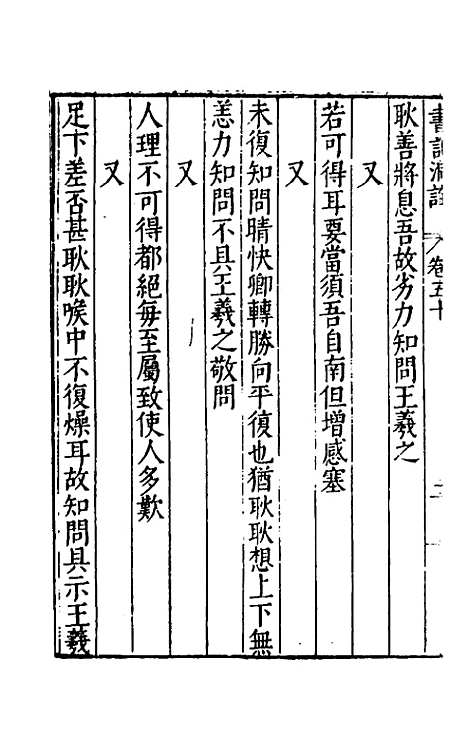 書記洞詮 卷五十
耿善將息吾故劣力知問王羲之
又
若可得耳要當須吾自南但增感塞
又
未復知問晴快卿轉勝向平復也猶耿耿想上下無
恙力知問不具王羲之敬問
又
人理不可得都絕每至屬致使人多歎
又
足下差否甚耿耿喉中不復燥耳故知問具示王羲